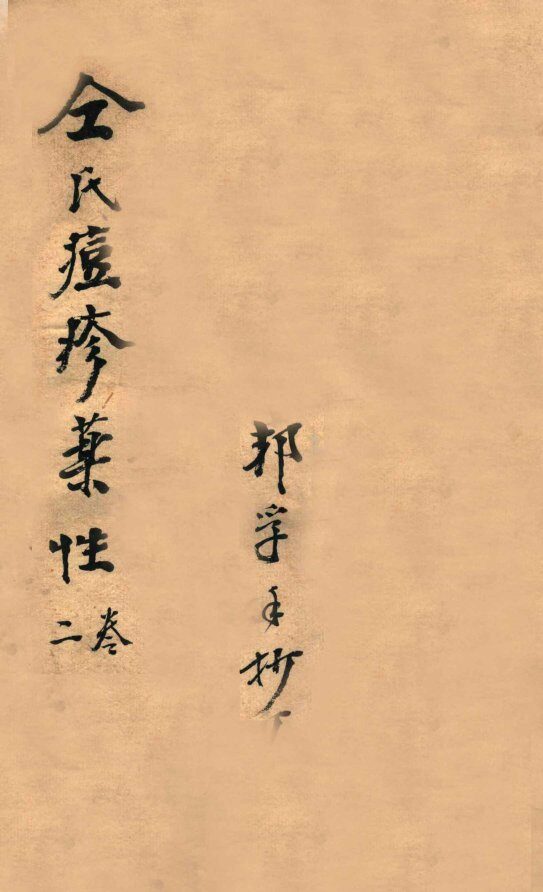 邦孚手抄
仝氏痘疹薬性
卷二